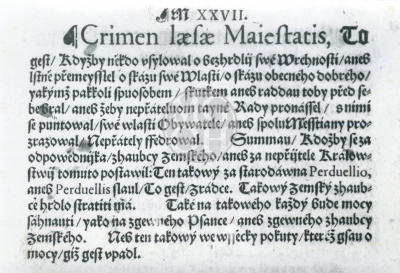 M XXVII.
¶ Crimen læsæ Maiestatis, To
gest/ Kdyžby někdo vsylowal o bezhrdlij swé Wrchnosti/ aneb
lstně přemeyssel o skázu swé Wlasti/ o skázu obecného dobrého/
yakýmž pakkoli spuosobem/ skutkem aneb raddau toby před se-
bebral/ aneb žeby nepřátelnom tayné Rady pronássel/ s nimi
se puntowal/ swé wlasti Obywatele/ aneb spolu Messtiany pro-
zrazowal/ Nepřátely ffedrowal. Summau/ Kdožby se za
odpowědnijka/ zhaubcy Zemského/ aneb za nepřijtele Králow-
stwij tomuto postawil: Ten takowý za starodáwna Perduellio,
aneb Perduellis slaul/ To gest/ Zrádce. Takowý Zemský zhaub-
ce hrdlo stratiti má. Také na takowého každý bude mocy
sáhnauti/ yako na zgewného Psance/ aneb zgewného zhaubcy
Zemského. Neb ten takowý we wssecky pokuty/ kteréž gsau o
mocy/ giž gest vpadl.